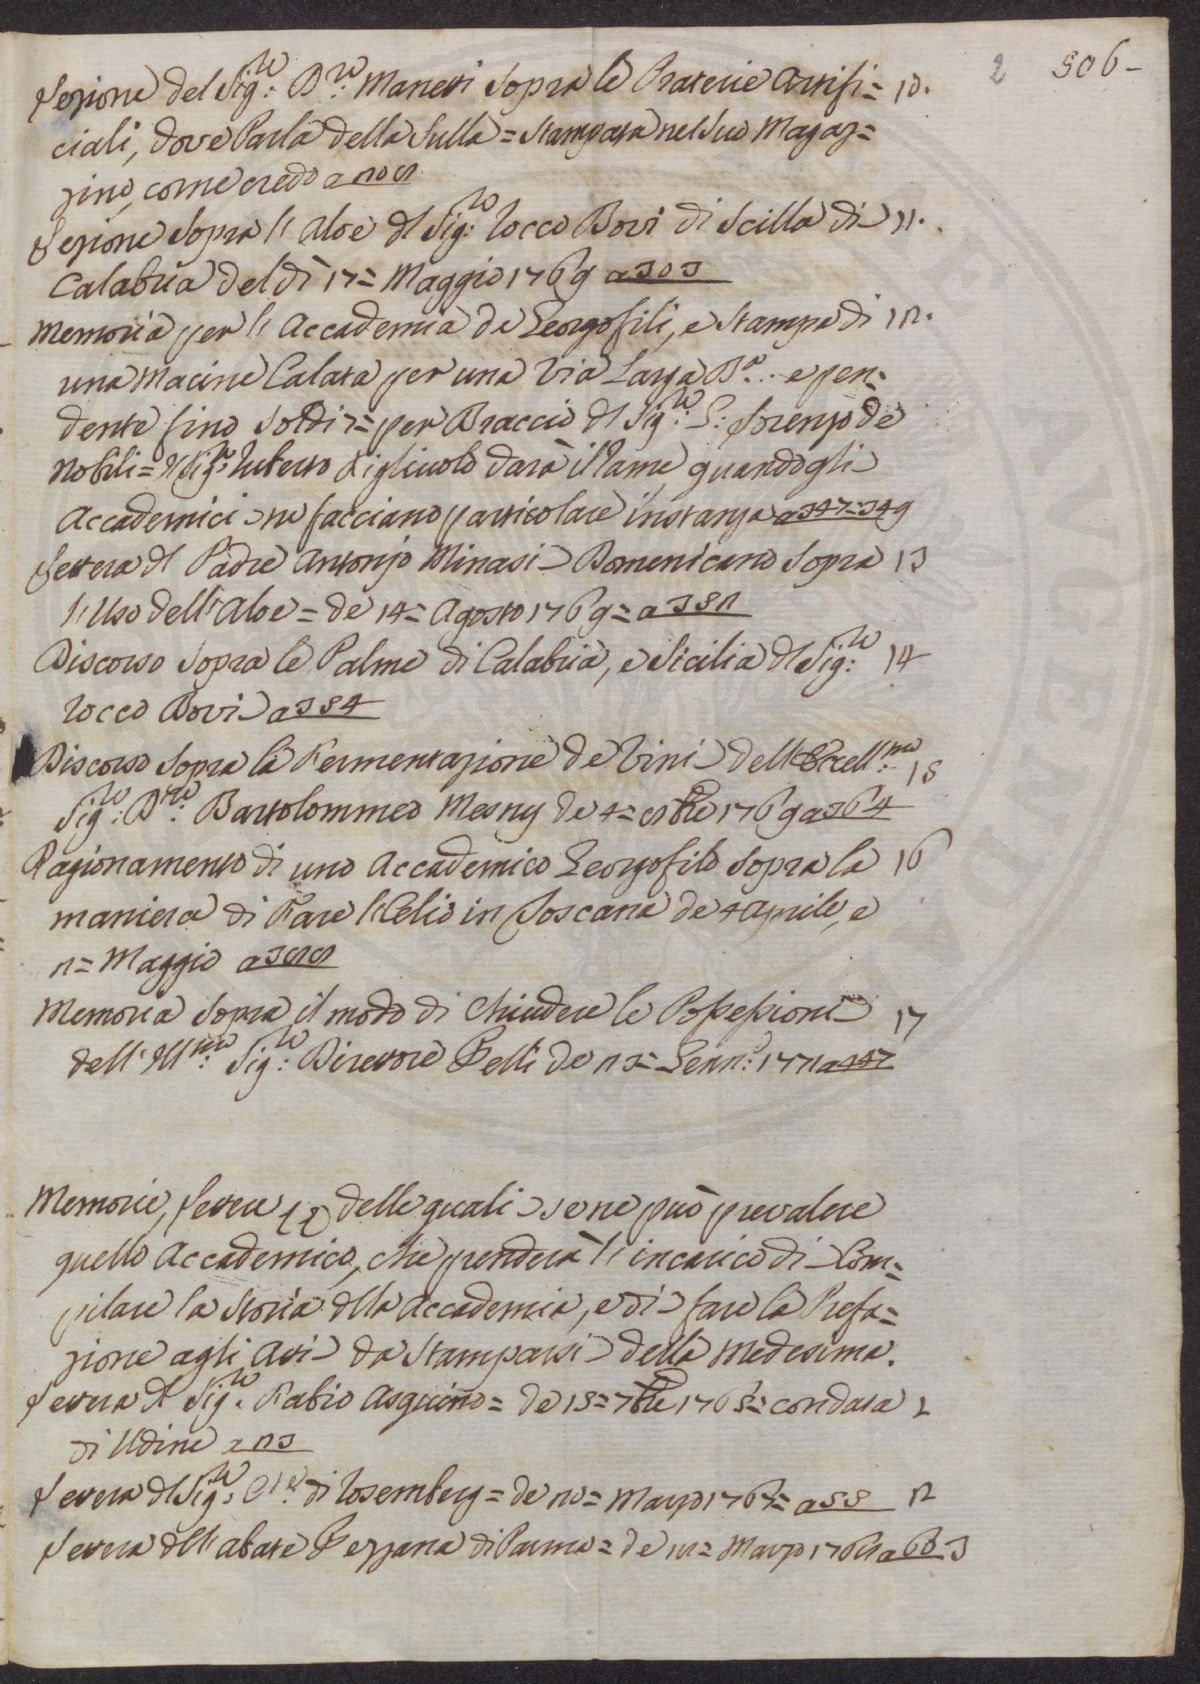 2 506-
Lezione del Sig:re D:re Manetti Sopra le Praterie Artifi= 10.
ciali, dove Parla della Sulla = Stampata nel Suo Magaz=
zino, come credo a
Lezione Sopra l'Aloe del Sig:re Rocco Bovi di Scilla di 11.
Calabria del dì 17= Maggio 1769 a 303
Memoria per l'Accademia de Georgofili, e Stampa di 12.
una Macine Calata per una Via Larga B:a .. e pen=
dente fino Soldi 7= per Braccio del Sig:re S: Lorenzo de
Nobili= Il Sig:re Uberto Figliuolo darà il Rame, quando gli
Accademici ne facciano particolare instanza a 347=349
Lettera del Padre Antonio Minasi Domenicano Sopra 13
l'Uso dell'Aloe = de 14= Agosto 1769= a 352
Discorso Sopra le Palme di Calabria, e Sicilia del Sig:re 14
Rocco Bovi a 354
Discorso Sopra la Fermentazione de Vini dell'Eccell:mo 15
Sig:re D:re Bartolommeo Mesny de 4= 9bre 1769 a 364
Ragionamento di uno Accademico Georgofilo Sopra la 16
maniera di Fare l'Olio in Toscana de 4 Aprile, e
2= Maggio a 399
Memoria Sopra il modo di Chiudere le Possessioni 17
dell'Ill:mo Sig:re Direttore Pelli de 23= Genn:o 1772 a
Memorie, Lettere &&. delle quali se ne può prevalere
quello Accademico, che prenderà l'incarico di Com=
pilare la Storia della Accademia, e di fare la Prefa=
zione agli Atti da Stamparsi della Medesima.
Lettera del Sig:re Fabio Asquino= de 15= 7bre 1765= con data 1
di Udine a 23
Lettera del Sig:re C:te di Rosemberg= de 20= Marzo 1767= a 55 2
Lettera dell'Abate Pezzana di Parma= de 12= Marzo a 60 3